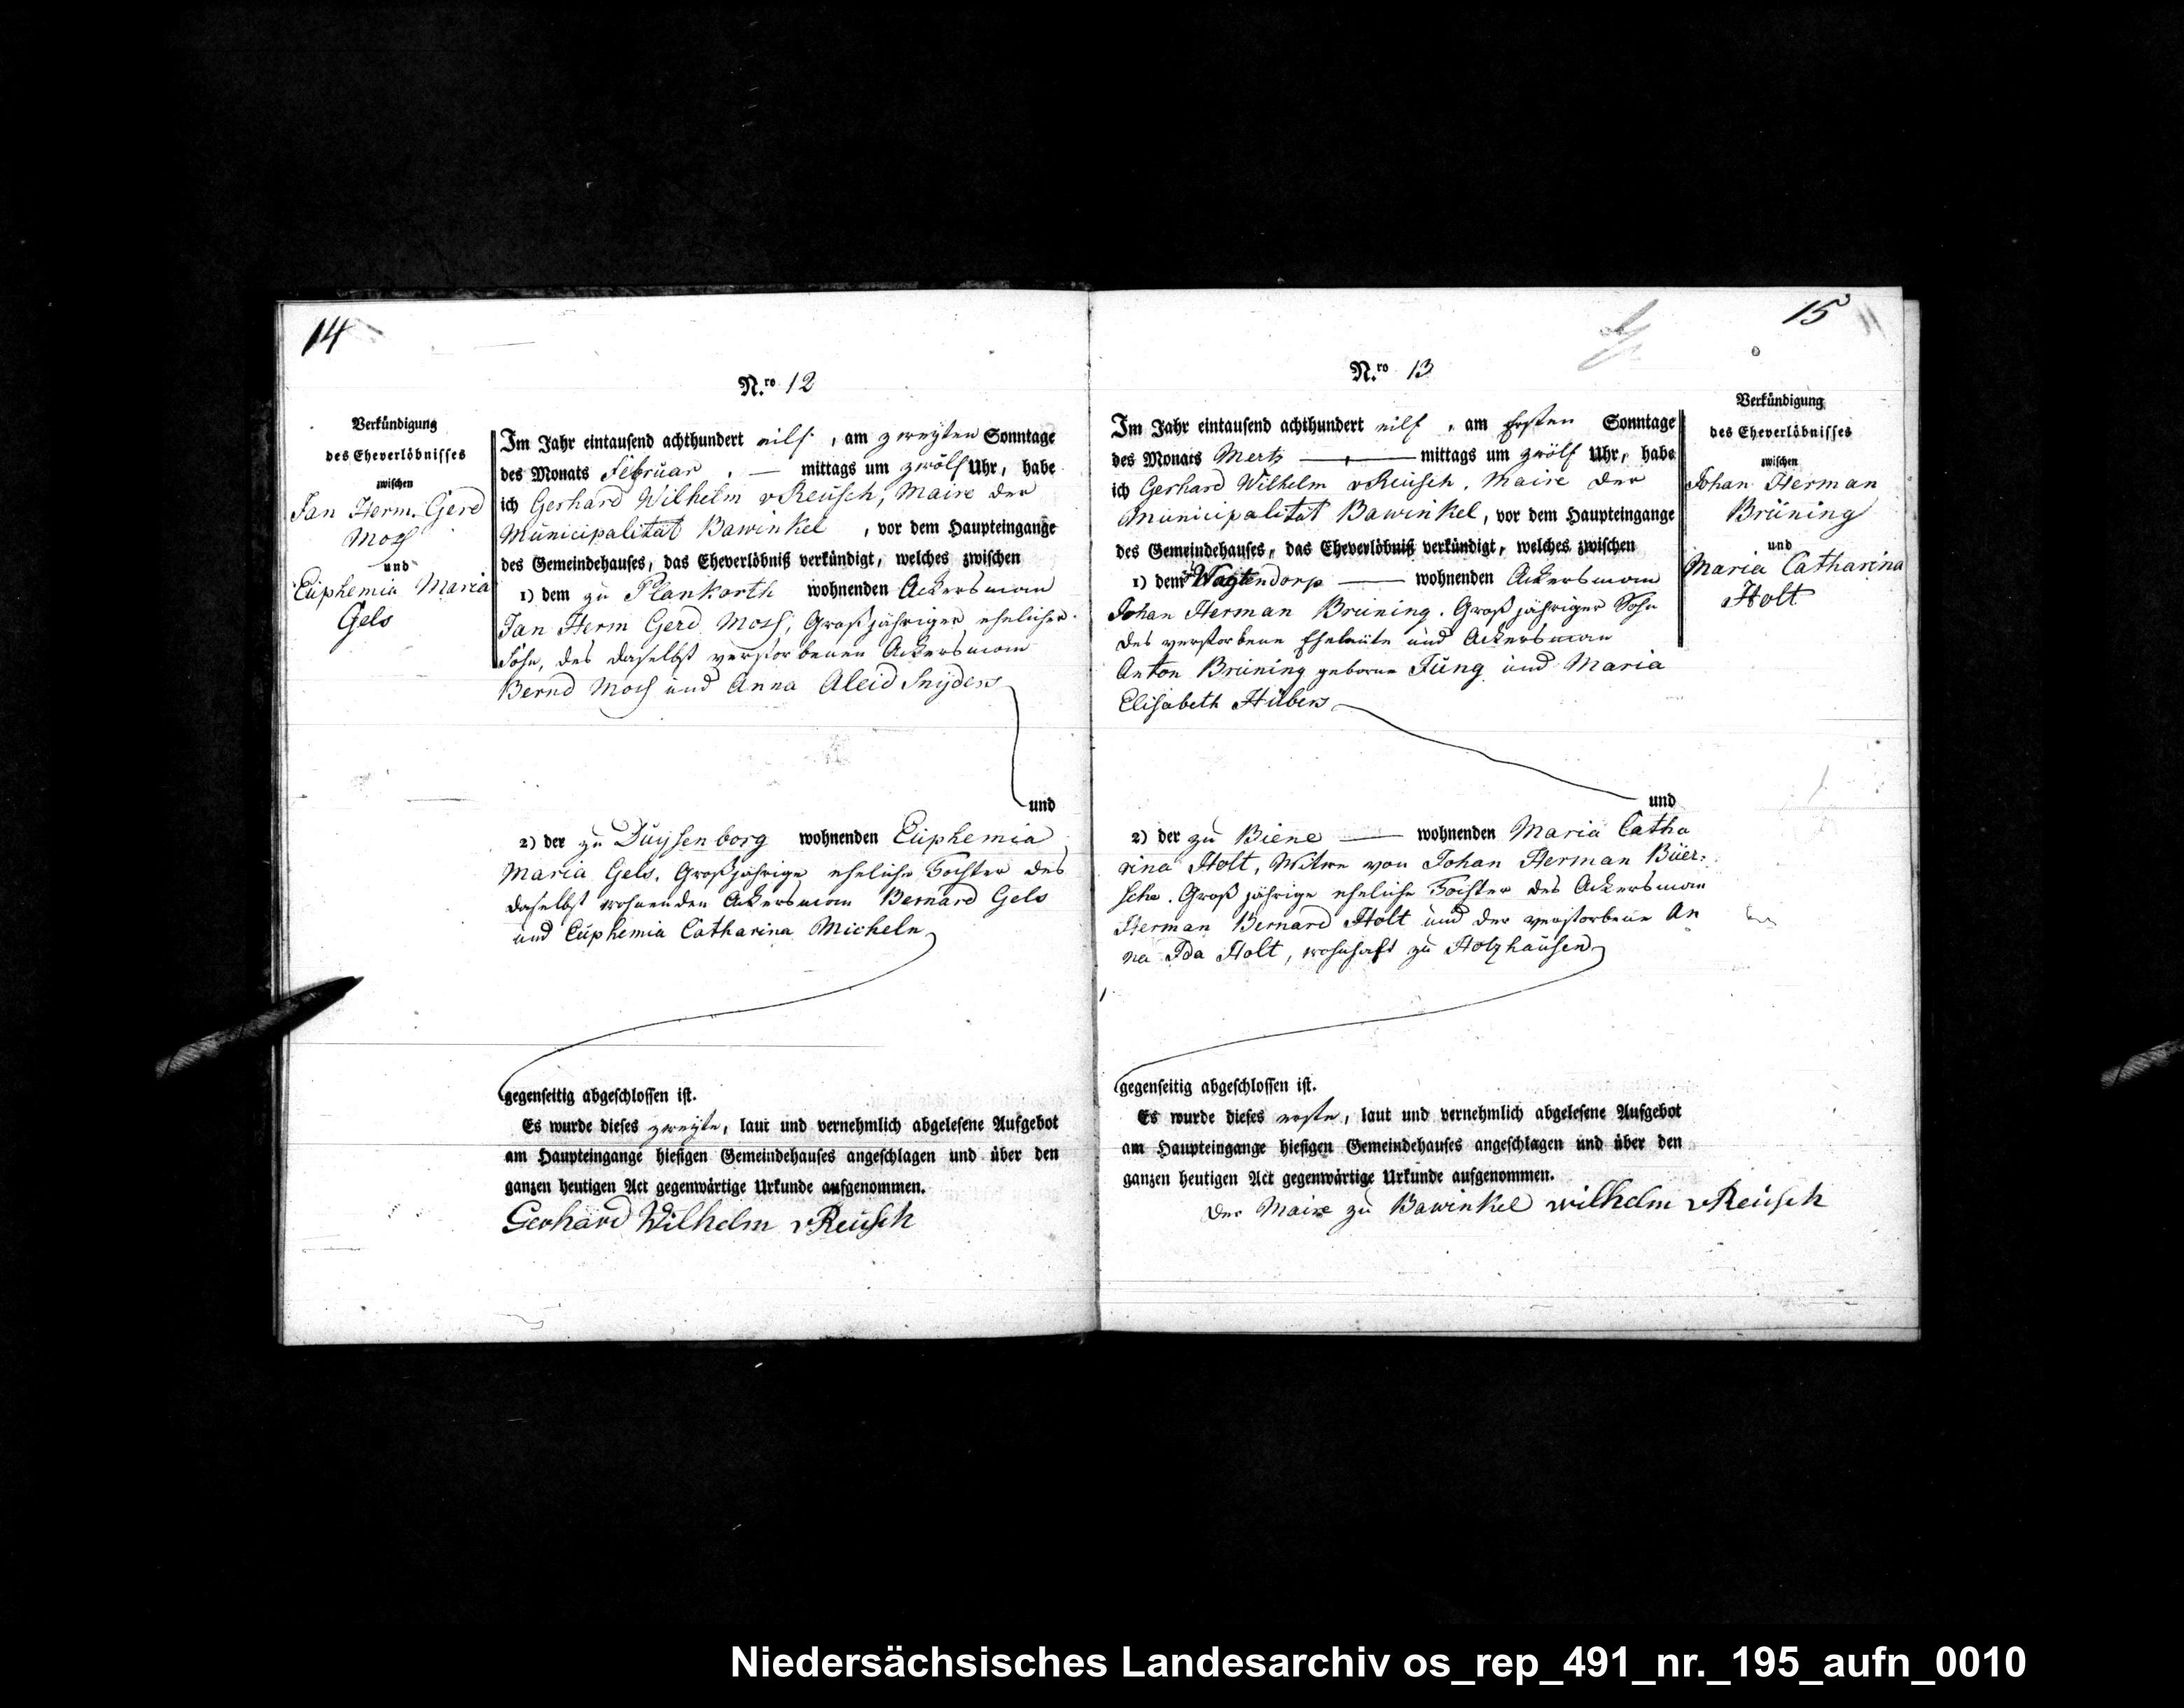 14
N.ro 12
Verkündigung
des Eheverlöbnisses
zwischen
Jan Herm. Gerd
Mosſ
und
Euphemia Maria
Gels
Im Jahr eintausend achthundert eilf, am zweyten Sonntage
des Monats Februar, — mittags um zwölf Uhr, habe
ich Gerhard Wilhelm vReusch, Maire der
Municipalität Bawinkel, vor dem Haupteingange
des Gemeindehauses, das Eheverlöbniß verkündigt, welches zwischen
1) dem zu Plankorth wohnenden Ackersmann
Jan Herm Gerd Mosſ, Großjähriger ehelicher
Sohn, des daselbst verstorbenen Ackersmann
Bernd Mosſ und Anna Aleid Snyders
und
2) der zu Duysenborg wohnenden Euphemia
Maria Gels. Großjährige eheliche Tochter des
daselbst wohnenden Ackersmann Bernard Gels
und Euphemia Catharina Micheln
gegenseitig abgeschlossen ist.
Es wurde dieses zweyte, laut und vernehmlich abgelesene Aufgebot
am Haupteingange hiesigen Gemeindehauses angeschlagen und über den
ganzen heutigen Act gegenwärtige Urkunde aufgenommen.
Gerhard Wilhelm vReusch
15
N.ro 13
Verkündigung
des Eheverlöbnisses
zwischen
Johan Herman
Brüning
und
Maria Catharina
Holt
Im Jahr eintausend achthundert eilf, am Ersten Sonntage
des Monats Mertz — mittags um zwölf Uhr, habe
ich Gerhard Wilhelm vReusch, Maire der
Municipalität Bawinkel, vor dem Haupteingange
des Gemeindehauses, das Eheverlöbniß verkündigt, welches zwischen
1) dem zu Wagtendorp — wohnenden Ackersmann
Johan Herman Brüning. Großjähriger Sohn
des verstorbene Eheleute und Ackersmann
Anton Brüning geborne Jüng und Maria
Elisabeth Hübers
und
2) der zu Biene — wohnenden Maria Catha
rina Holt, Witwe von Johan Herman Büer-
sche. Großjährige eheliche Tochter des Ackersmann
Herman Bernard Holt und der verstorbene An
na Ida Holt, wohnhaft zu Holzhausen
gegenseitig abgeschlossen ist.
Es wurde dieses erste, laut und vernehmlich abgelesene Aufgebot
am Haupteingange hiesigen Gemeindehauses angeschlagen und über den
ganzen heutigen Act gegenwärtige Urkunde aufgenommen.
Der Maire zu Bawinkel wilhelm vReusch
Niedersächsisches Landesarchiv os_rep_491_nr._195_aufn_0010